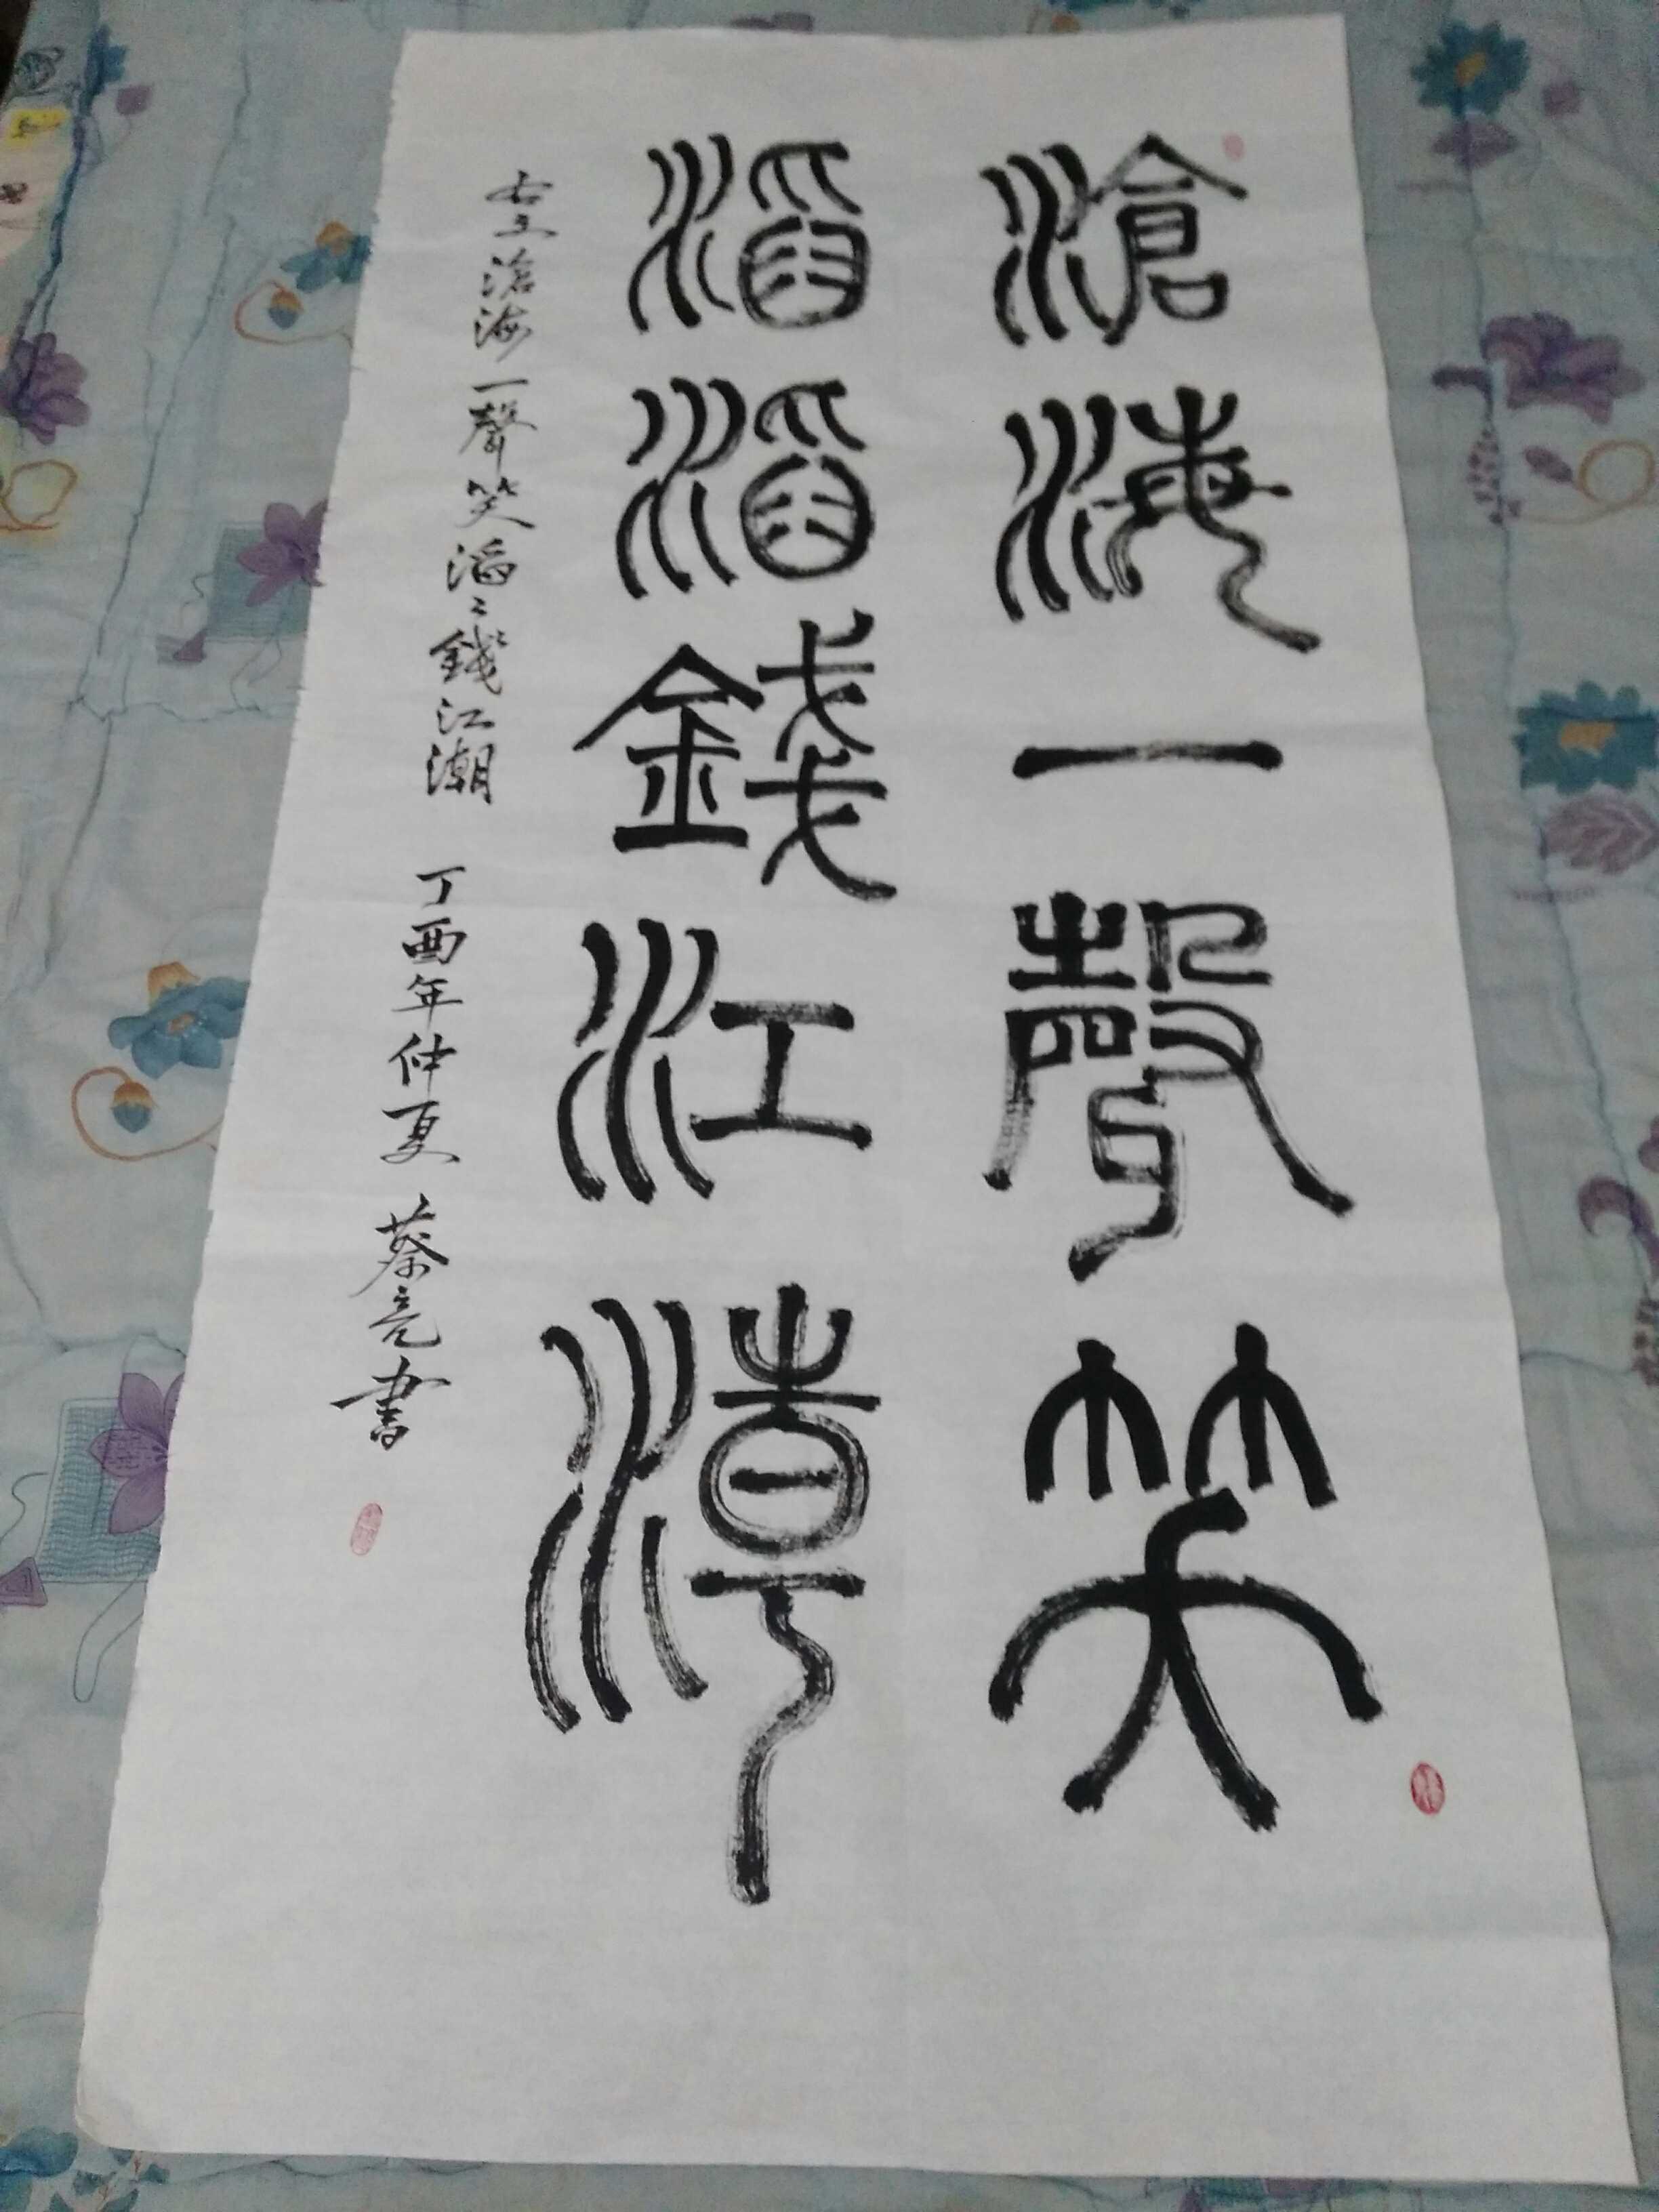 滄海一聲笑
滔滔錢江潮
右文滄海一聲笑滔〻錢江潮 丁酉年仲夏 蔡亮書